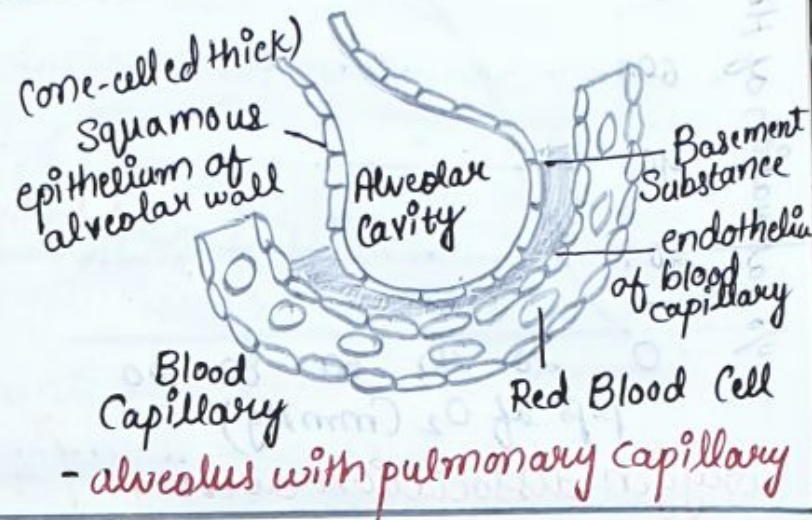 (one-celled thick)
Squamous
epithelium of
alveolar wall
Alveolar
Cavity
Basement
Substance
endotheliu
of blood
capillary
Blood
Capillary
Red Blood Cell
- alveolus with pulmonary capillary